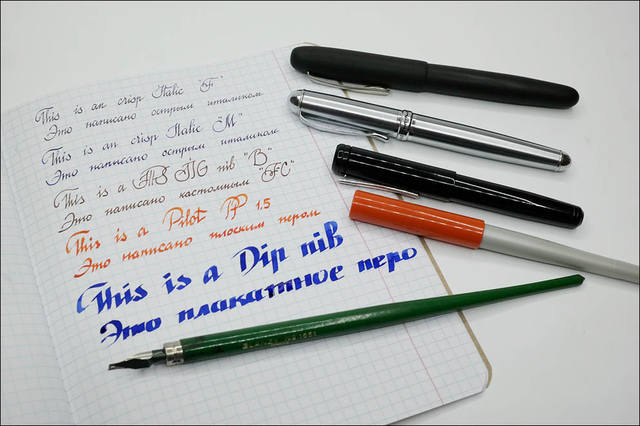 This is an crisp Italic "F"
Это написано острым италиком
This is an crisp Italic "M"
Это написано острым италиком
This is a nib "B"
Это написано кастомным "FC"
This is a Pilot PP 1.5
Это написано плоским пером
This is a Dip nib
Это плакатное перо